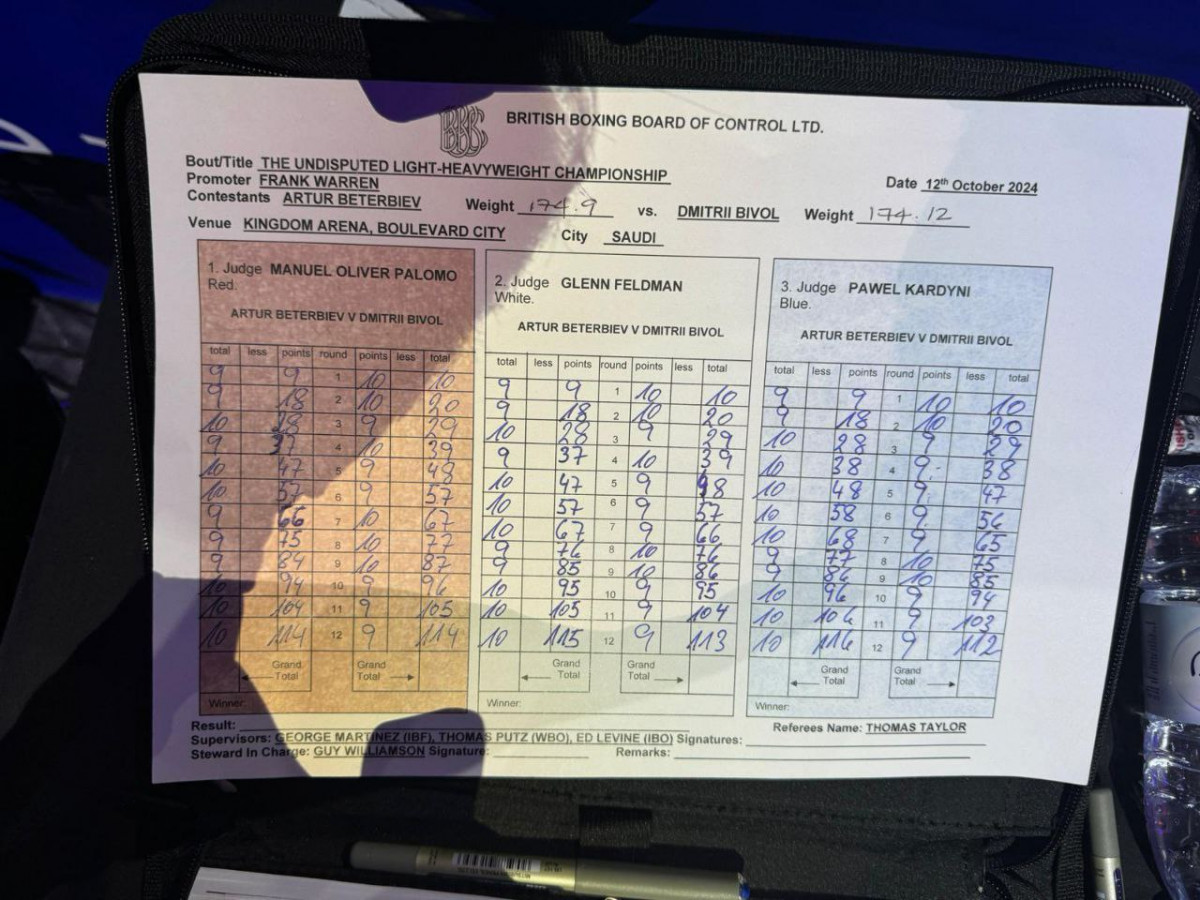 BBBC
BRITISH BOXING BOARD OF CONTROL LTD.
Bout/Title THE UNDISPUTED LIGHT-HEAVYWEIGHT CHAMPIONSHIP
Promoter FRANK WARREN Date 12th October 2024
Contestants ARTUR BETERBIEV Weight 174.9 vs. DMITRII BIVOL Weight 174.12
Venue KINGDOM ARENA, BOULEVARD CITY City SAUDI
1. Judge MANUEL OLIVER PALOMO
Red.
ARTUR BETERBIEV V DMITRII BIVOL
total less points round points less total
9 9 1 10 10
9 18 2 10 20
10 28 3 9 29
9 37 4 10 39
10 47 5 9 48
10 57 6 9 57
9 66 7 10 67
9 75 8 10 77
9 84 9 10 87
10 94 10 9 96
10 104 11 9 105
10 114 12 9 114
Grand Grand
Total Total
Winner:
2. Judge GLENN FELDMAN
White.
ARTUR BETERBIEV V DMITRII BIVOL
total less points round points less total
9 9 1 10 10
9 18 2 10 20
10 28 3 9 29
9 37 4 10 39
10 47 5 9 48
10 57 6 9 57
10 67 7 9 66
9 76 8 10 76
9 85 9 10 86
10 95 10 9 95
10 105 11 9 104
10 115 12 9 113
Grand Grand
Total Total
Winner:
3. Judge PAWEL KARDYNI
Blue.
ARTUR BETERBIEV V DMITRII BIVOL
total less points round points less total
9 9 1 10 10
9 18 2 10 20
10 28 3 9 29
10 38 4 9 38
10 48 5 9 47
10 58 6 9 56
10 68 7 9 65
9 77 8 10 75
9 86 9 10 85
10 96 10 9 94
10 106 11 9 103
10 116 12 9 112
Grand Grand
Total Total
Winner:
Result: Referees Name: THOMAS TAYLOR
Supervisors: GEORGE MARTINEZ (IBF), THOMAS PUTZ (WBO), ED LEVINE (IBO) Signatures:
Steward In Charge: GUY WILLIAMSON Signature: Remarks: